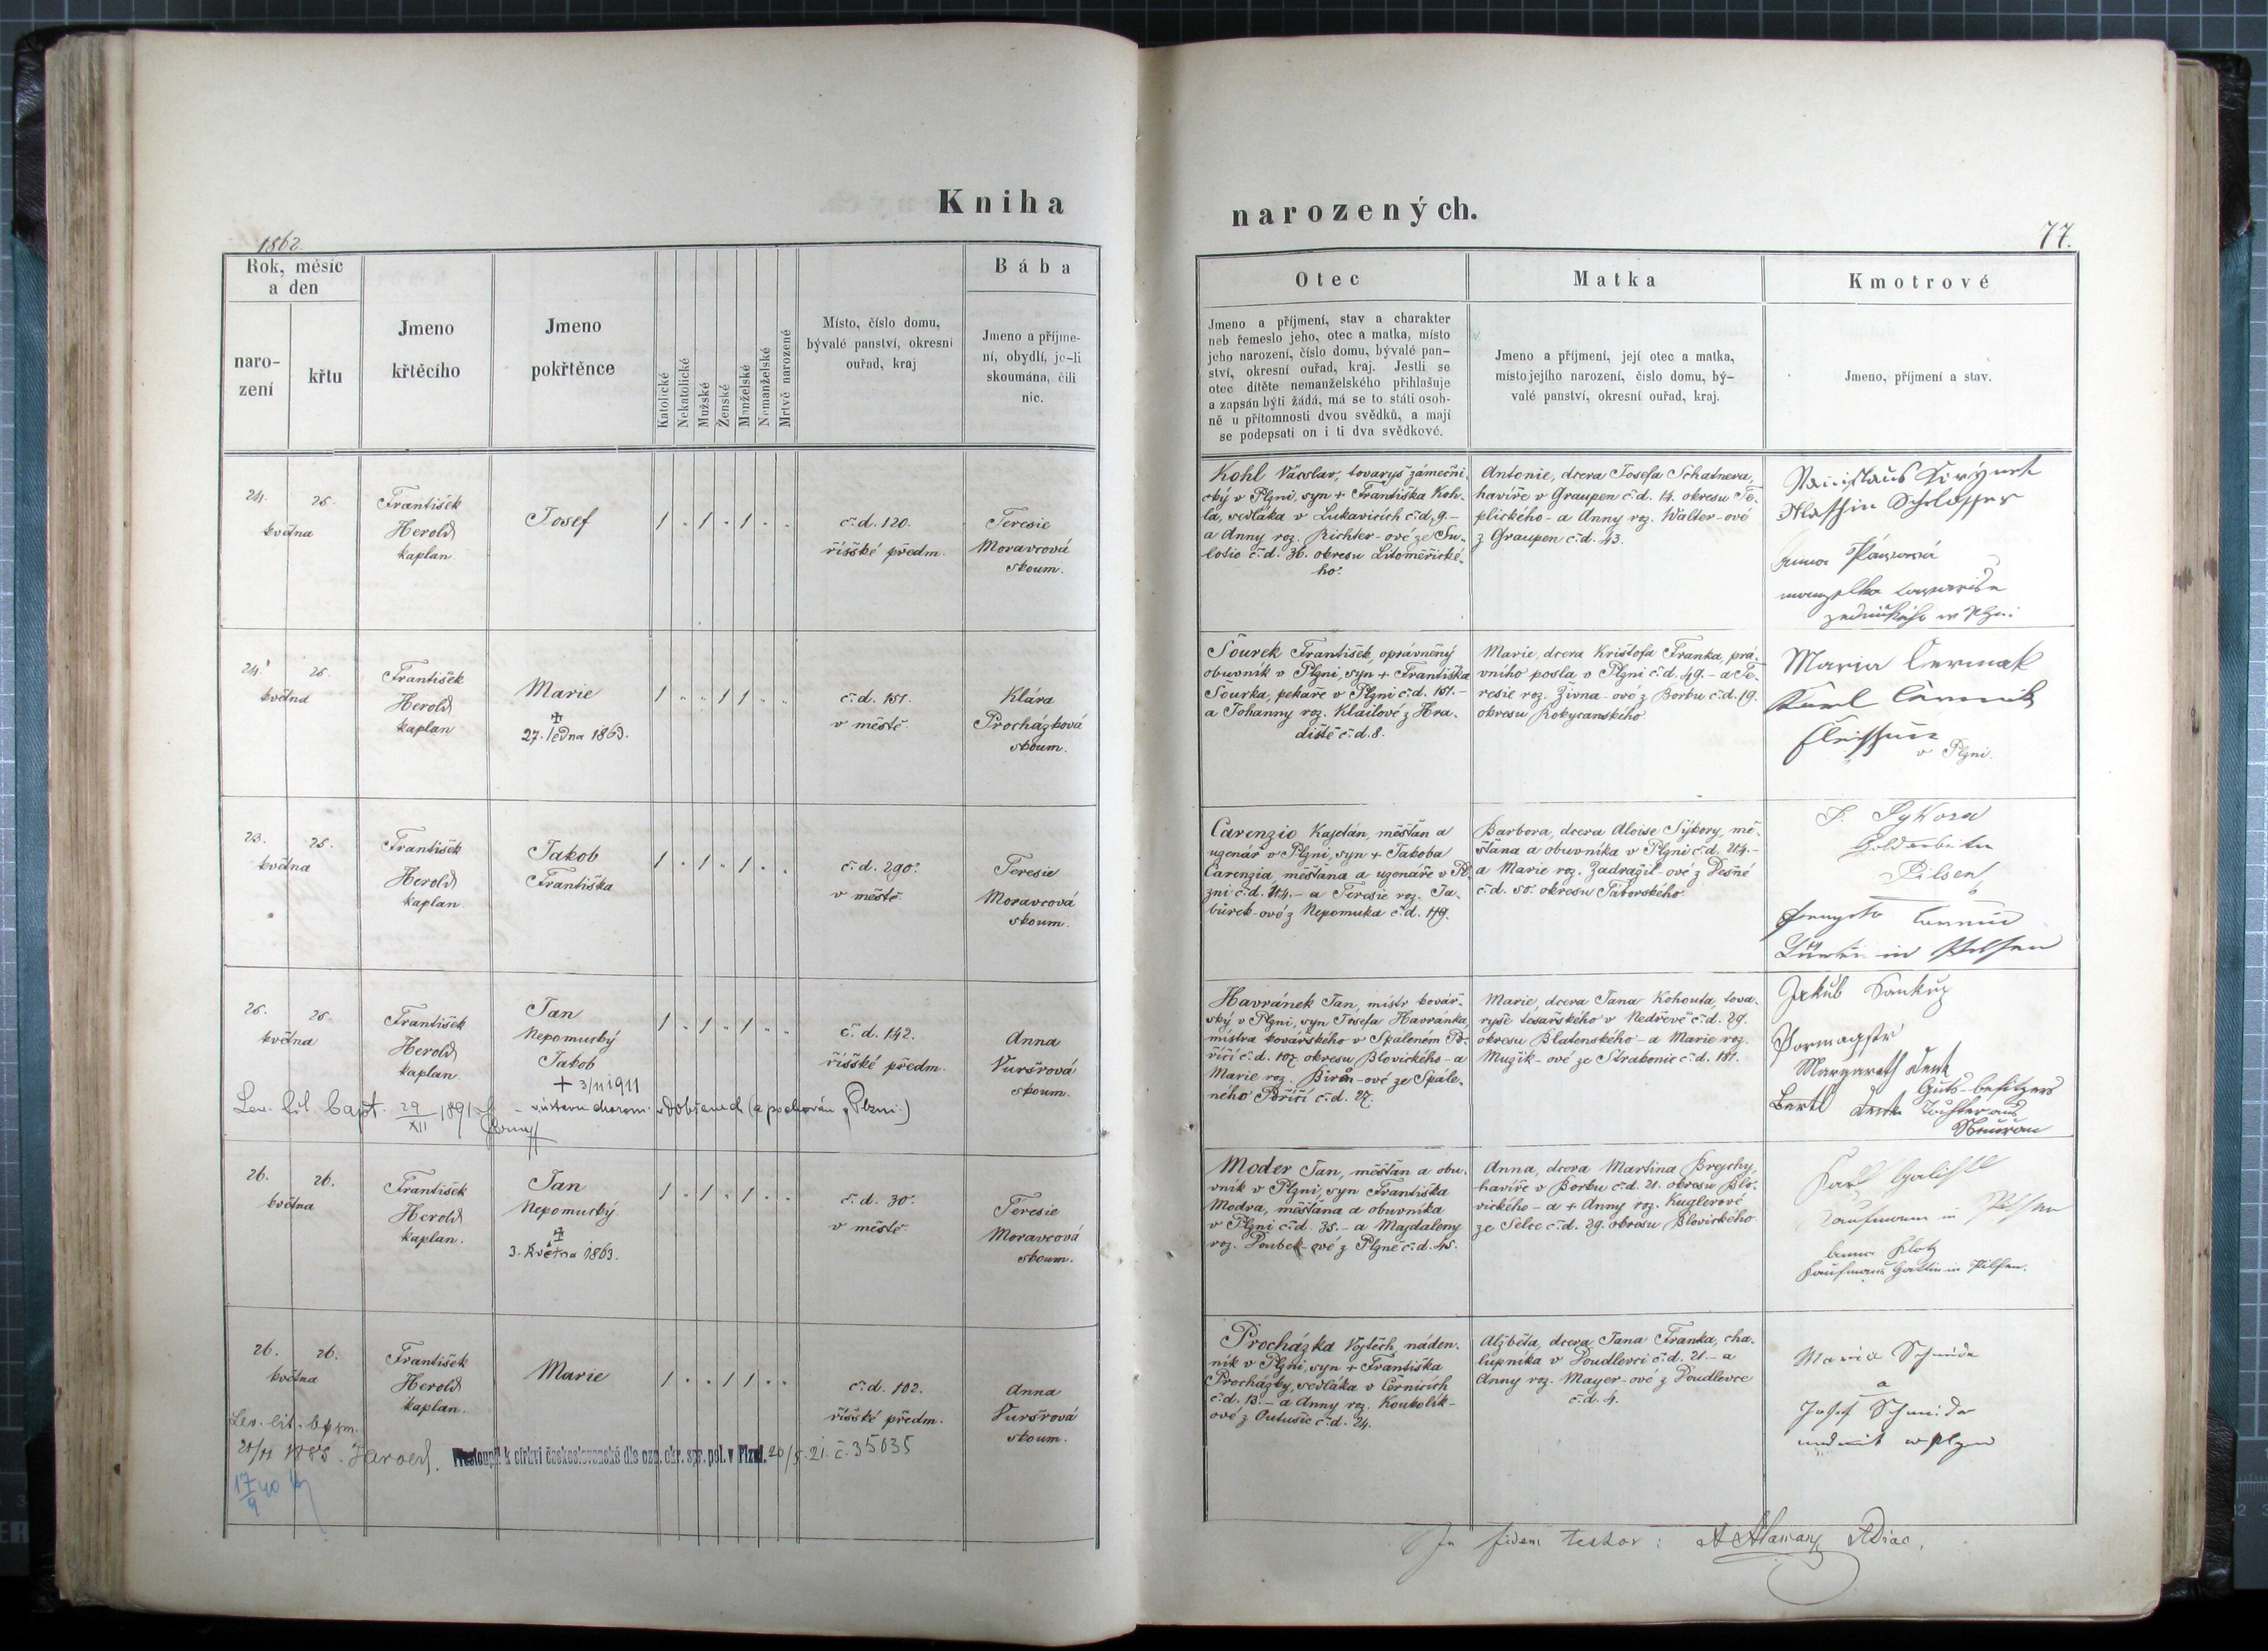 Kniha
narozených.
1862.
77.
Rok, měsíc
a den
naro-
zení
křtu
Jmeno
křtěcího
Jmeno
pokřtěnce
Katolické
Nekatolické
Mužské
Ženské
Manželské
Nemanželské
Mrtvě narozené
Místo, číslo domu,
bývalé panství, okresní
ouřad, kraj
Bába
Jmeno a příjme-
ní, obydlí, je-li
skoumána, čili
nic.
Otec
Jmeno a příjmení, stav a charakter
neb řemeslo jeho, otec a matka, místo
jeho narození, číslo domu, bývalé pan-
ství, okresní ouřad, kraj. Jestli se
otec dítěte nemanželského přihlašuje
a zapsán býti žádá, má se to státi osob-
ně u přítomnosti dvou svědků, a mají
se podepsati on i ti dva svědkové.
Matka
Jmeno a příjmení, její otec a matka,
místo jejího narození, číslo domu, bý-
valé panství, okresní ouřad, kraj.
Kmotrové
Jmeno, příjmení a stav.
24. 25.
května
František
Herold
kaplan
Josef
1 . 1 . 1 . .
č. d. 120.
říšské předm.
Teresie
Moravcová
skoum.
Kohl Václav, tovaryš zámečni-
cký v Plzni, syn + Františka Koh-
la, sedláka v Lukavicích č. d. 9 –
a Anny roz. Richter-ové ze Su-
lotic č. d. 36. okresu Litoměřické-
ho.
Antonie, dcera Josefa Schatnera,
havíře v Graupen č. d. 14. okresu Te-
plického - a Anny roz. Walter-ové
z Graupen č. d. 43.
Anna
manzelka
w Plzni
24. 25.
května
František
Herold
kaplan
Marie
27. ledna 1863.
1 . . 1 1 . .
č. d. 151.
v městě.
Klára
Procházková
skoum.
Šourek František, oprávněný
obuvník v Plzni, syn + Františka
Šourka, pekaře v Plzni č. d. 151. –
a Johanny roz. Klailové z Hra-
diště č. d. 8.
Marie, dcera Krištofa Franka, prá-
vního posla v Plzni č. d. 49. – a Te-
resie roz. Živna-ové z Borku č. d. 19.
okresu Rokycanského
Maria Cermak
Karl
v Plzni.
23. 25.
května
František
Herold
kaplan
Jakob
Františka
1 . 1 . 1 . .
č. d. 290.
v městě.
Teresie
Moravcová
skoum.
Carenzio Kajetán, měšťan a
uzenář v Plzni, syn + Jakoba
Carenzia měšťana a uzenáře v Pl-
zni č. d. 214. – a Teresie roz. Ja-
bůrek-ové z Nepomuka č. d. 119.
Barbora, dcera Aloise Sýkory, mě-
šťana a obuvníka v Plzni č. d. 214. –
a Marie roz. Zadražil-ové z Dešné
č. d. 50. okresu Táborského.
F. Sykora
Goldarbeiter
Pilsen
in Pilsen
25. 25.
května
František
Herold
kaplan.
Jan
Nepomucký
Jakob
+ 3/11 1911
1 . 1 . 1 . .
č. d. 142.
říšské předm.
Anna
Vuršrová
skoum.
Lev. lit. bapt. 29/XII 1891
v ústavu chorom. v Dobřanech (a pochován v Plzni.)
Havránek Jan, mistr kovář-
ský v Plzni, syn Josefa Havránka,
mistra kovářského v Spáleném Po-
říčí č. d. 107. okresu Blovického – a
Marie roz. -ové ze Spále-
ného Poříčí č. d. 27.
Marie, dcera Jana Kohouta, tova-
ryše tesařského v Nedřevě č. d. 29.
okresu Blatenského – a Marie roz.
Mužik-ové ze Strakonic č. d. 151.
Jakub Soukup
Margareth
Guts-besitzers
Tochter aus
26. 26.
května
František
Herold
kaplan.
Jan
Nepomucký
3. května 1863.
1 . 1 . 1 . .
č. d. 30.
v městě.
Teresie
Moravcová
skoum.
Moder Jan, měšťan a obu-
vník v Plzni, syn Františka
Modra, měšťana a obuvníka
v Plzni č. d. 35. – a Majdaleny
roz. Doubek-ové z Plzně č. d. 45.
Anna, dcera Martina Brejchy,
havíře v Borku č. d. 21. okresu Blo-
vického – a + Anny roz. Kuglerové
ze Selce č. d. 29. okresu Blovického
Karl
Kaufmann in Pilsen
Anna Klotz
Kaufmans Gattin in Pilsen.
26. 26.
května
František
Herold
kaplan.
Marie
1 . . 1 1 . .
č. d. 102.
říšské předm.
Anna
Vuršrová
skoum.
Lev. lit. bpsm.
21/11 1885.
Přestoupil k církvi československé dle ozn. okr. spr. pol. v Plzni. 20/5. 21. č. 35035
17/9 40
Procházka Vojtěch, náden-
ník v Plzni, syn + Františka
Procházky, sedláka v Černicích
č. d. 13. – a Anny roz. Koubolík-
ové z Outušic č. d. 24.
Alžběta, dcera Jana Franka, cha-
lupníka v Doudlevci č. d. 21. – a
Anny roz. Mayer-ové z Doudlevce
č. d. 4.
Maria Schmida
a
Josef Schmida
In fidem testor: